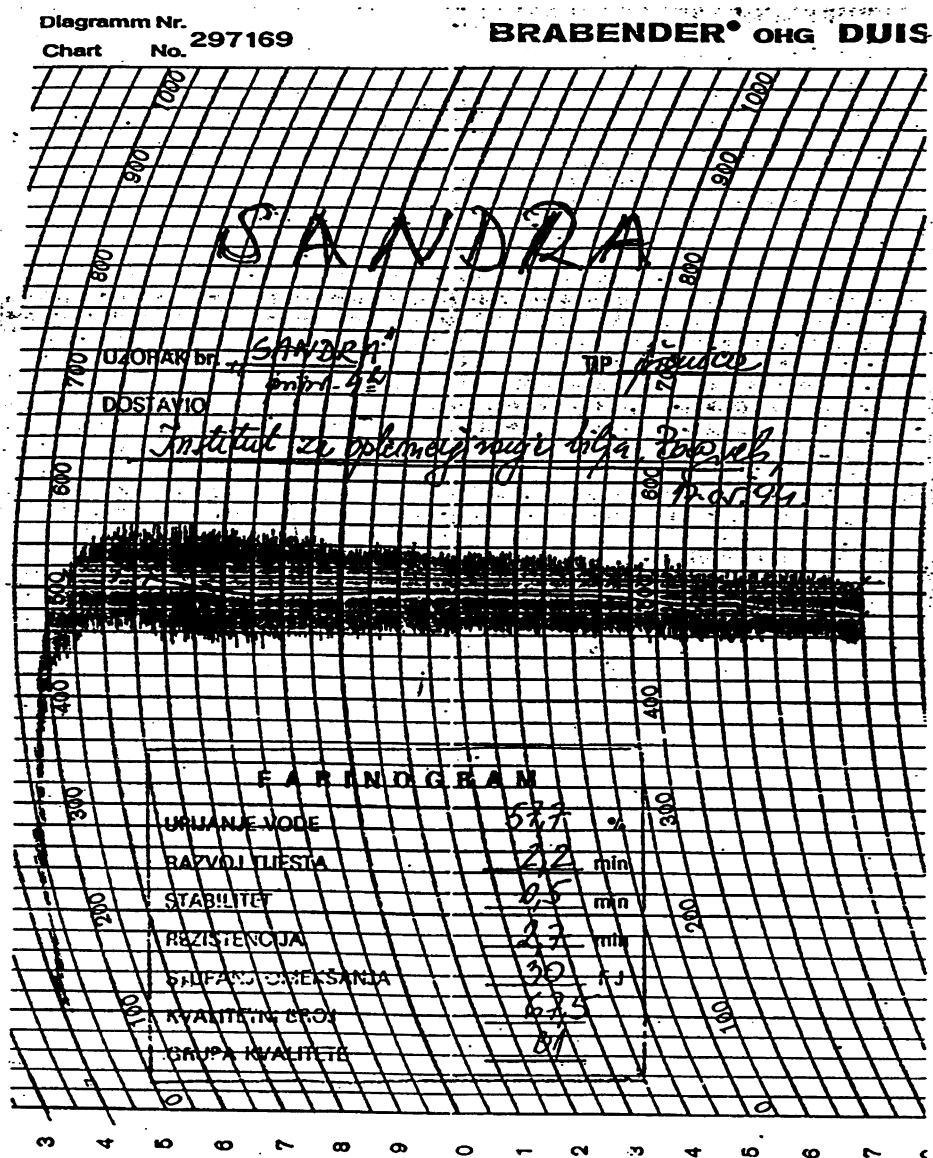 Diagramm Nr.
Chart No. 297169
BRABENDER® OHG DUIS
1000 1000
900 900
SANDRA
800 800
UZORAK br. „SANDRA"
TIP pšenice
700 700
DOSTAVIO
Institut za oplemenjivanje bilja, Zagreb,
600 600
500 500
400 400
FARINOGRAM
300 300
UPIJANJE VODE 57,7 %
RAZVOJ TIJESTA 2,2 min
STABILITET 0,5 min
200 200
REZISTENCIJA 2,7 min
STUPANJ OMEKŠANJA 30 FJ
KVALITETNI BROJ 67,5
100 100
GRUPA KVALITETE B1
0 0
3 4 5 6 7 8 9 0 1 2 3 4 5 6 7